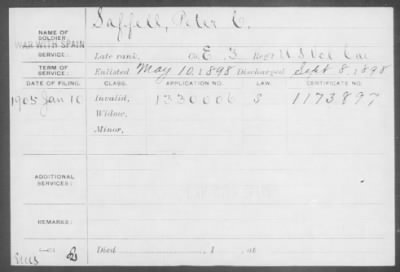 NAME OF SOLDIER: Saffell, Peter C.
WAR WITH SPAIN
SERVICE: Late rank, Co. E, 3 Reg't U S Vol Cav
TERM OF SERVICE: Enlisted May 10, 1898 Discharged Sept 8, 1898
DATE OF FILING. CLASS. APPLICATION NO. LAW. CERTIFICATE NO.
1905 Jan 10 Invalid, 1330006 S 1173897
Widow,
Minor,
ADDITIONAL SERVICES:
REMARKS:
Died 1 , at